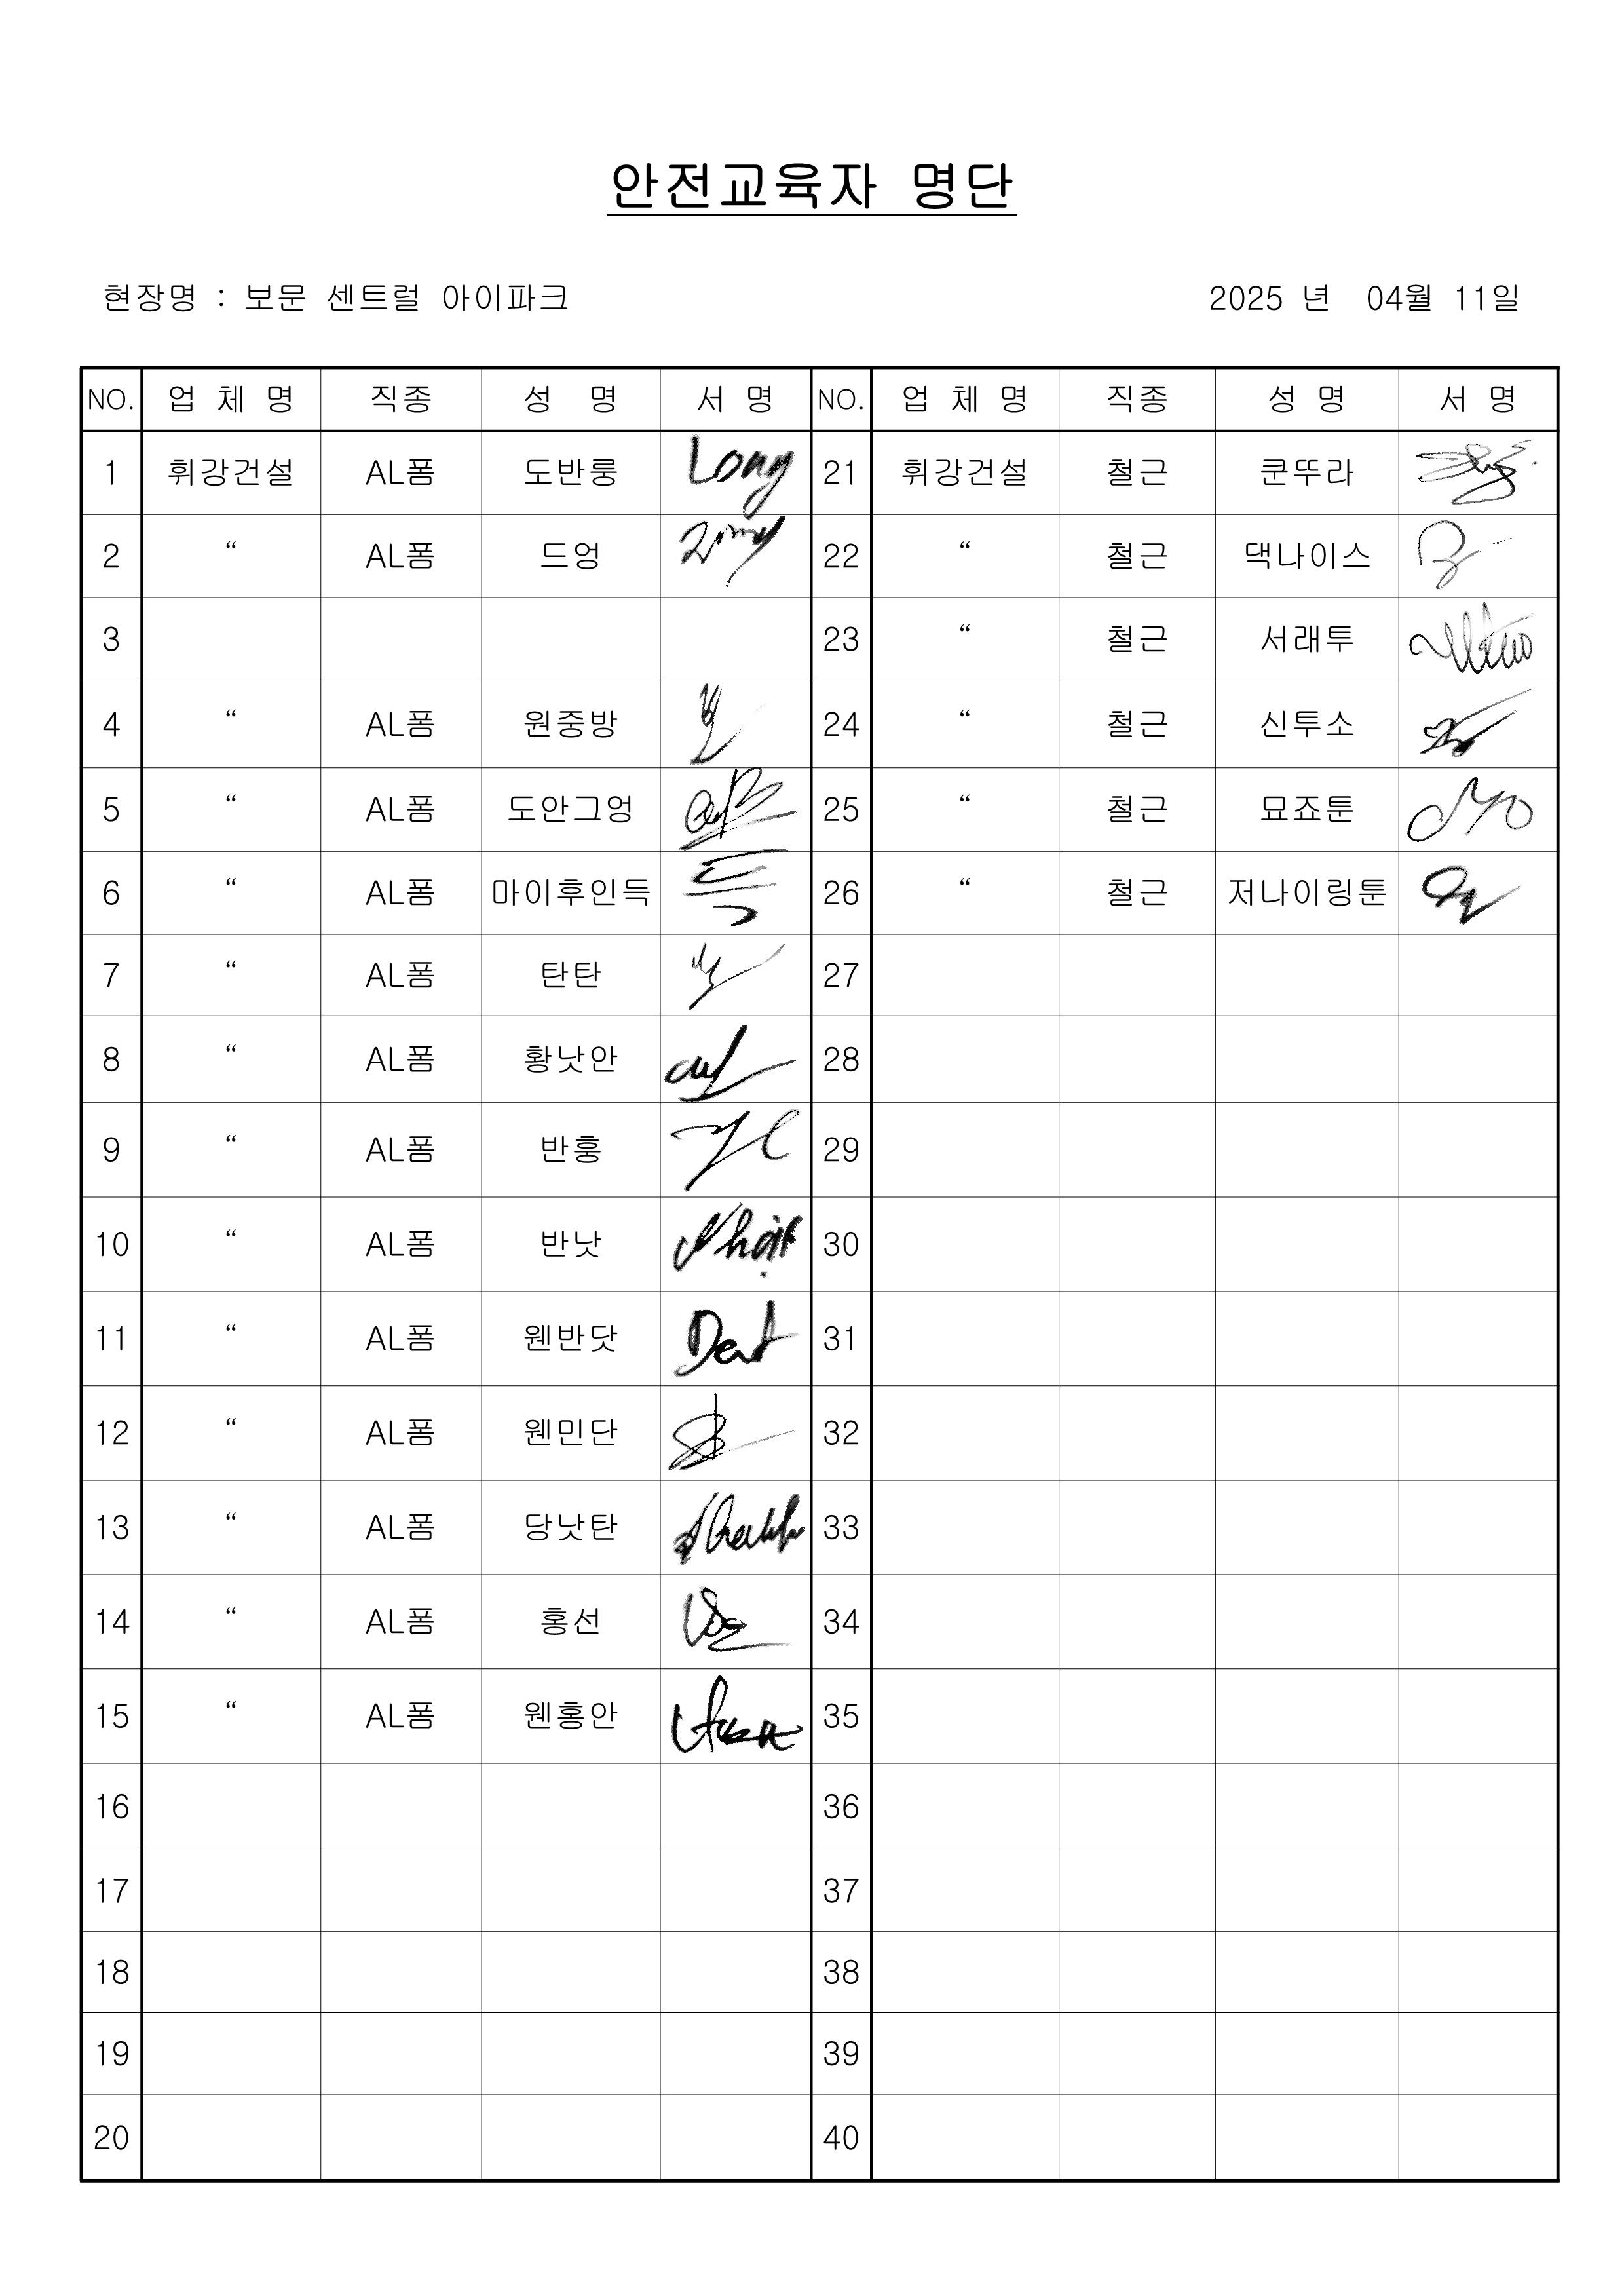 안전교육자 명단
현장명 : 보문 센트럴 아이파크 2025 년 04월 11일
NO. 업 체 명 직종 성 명 서 명 NO. 업 체 명 직종 성 명 서 명
1 휘강건설 AL폼 도반룽 Long 21 휘강건설 철근 쿤뚜라
2 “ AL폼 드엉 22 “ 철근 댁나이스
3 23 “ 철근 서래투
4 “ AL폼 원중방 24 “ 철근 신투소
5 “ AL폼 도안그엉 25 “ 철근 묘죠툰
6 “ AL폼 마이후인득 득 26 “ 철근 저나이링툰
7 “ AL폼 탄탄 27
8 “ AL폼 황낫안 28
9 “ AL폼 반훙 29
10 “ AL폼 반낫 Nhật 30
11 “ AL폼 웬반닷 31
12 “ AL폼 웬민단 32
13 “ AL폼 당낫탄 33
14 “ AL폼 홍선 34
15 “ AL폼 웬홍안 35
16 36
17 37
18 38
19 39
20 40